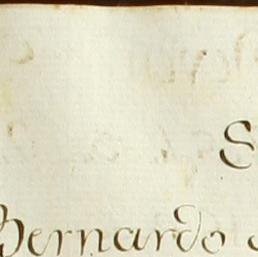 S
Bernardo